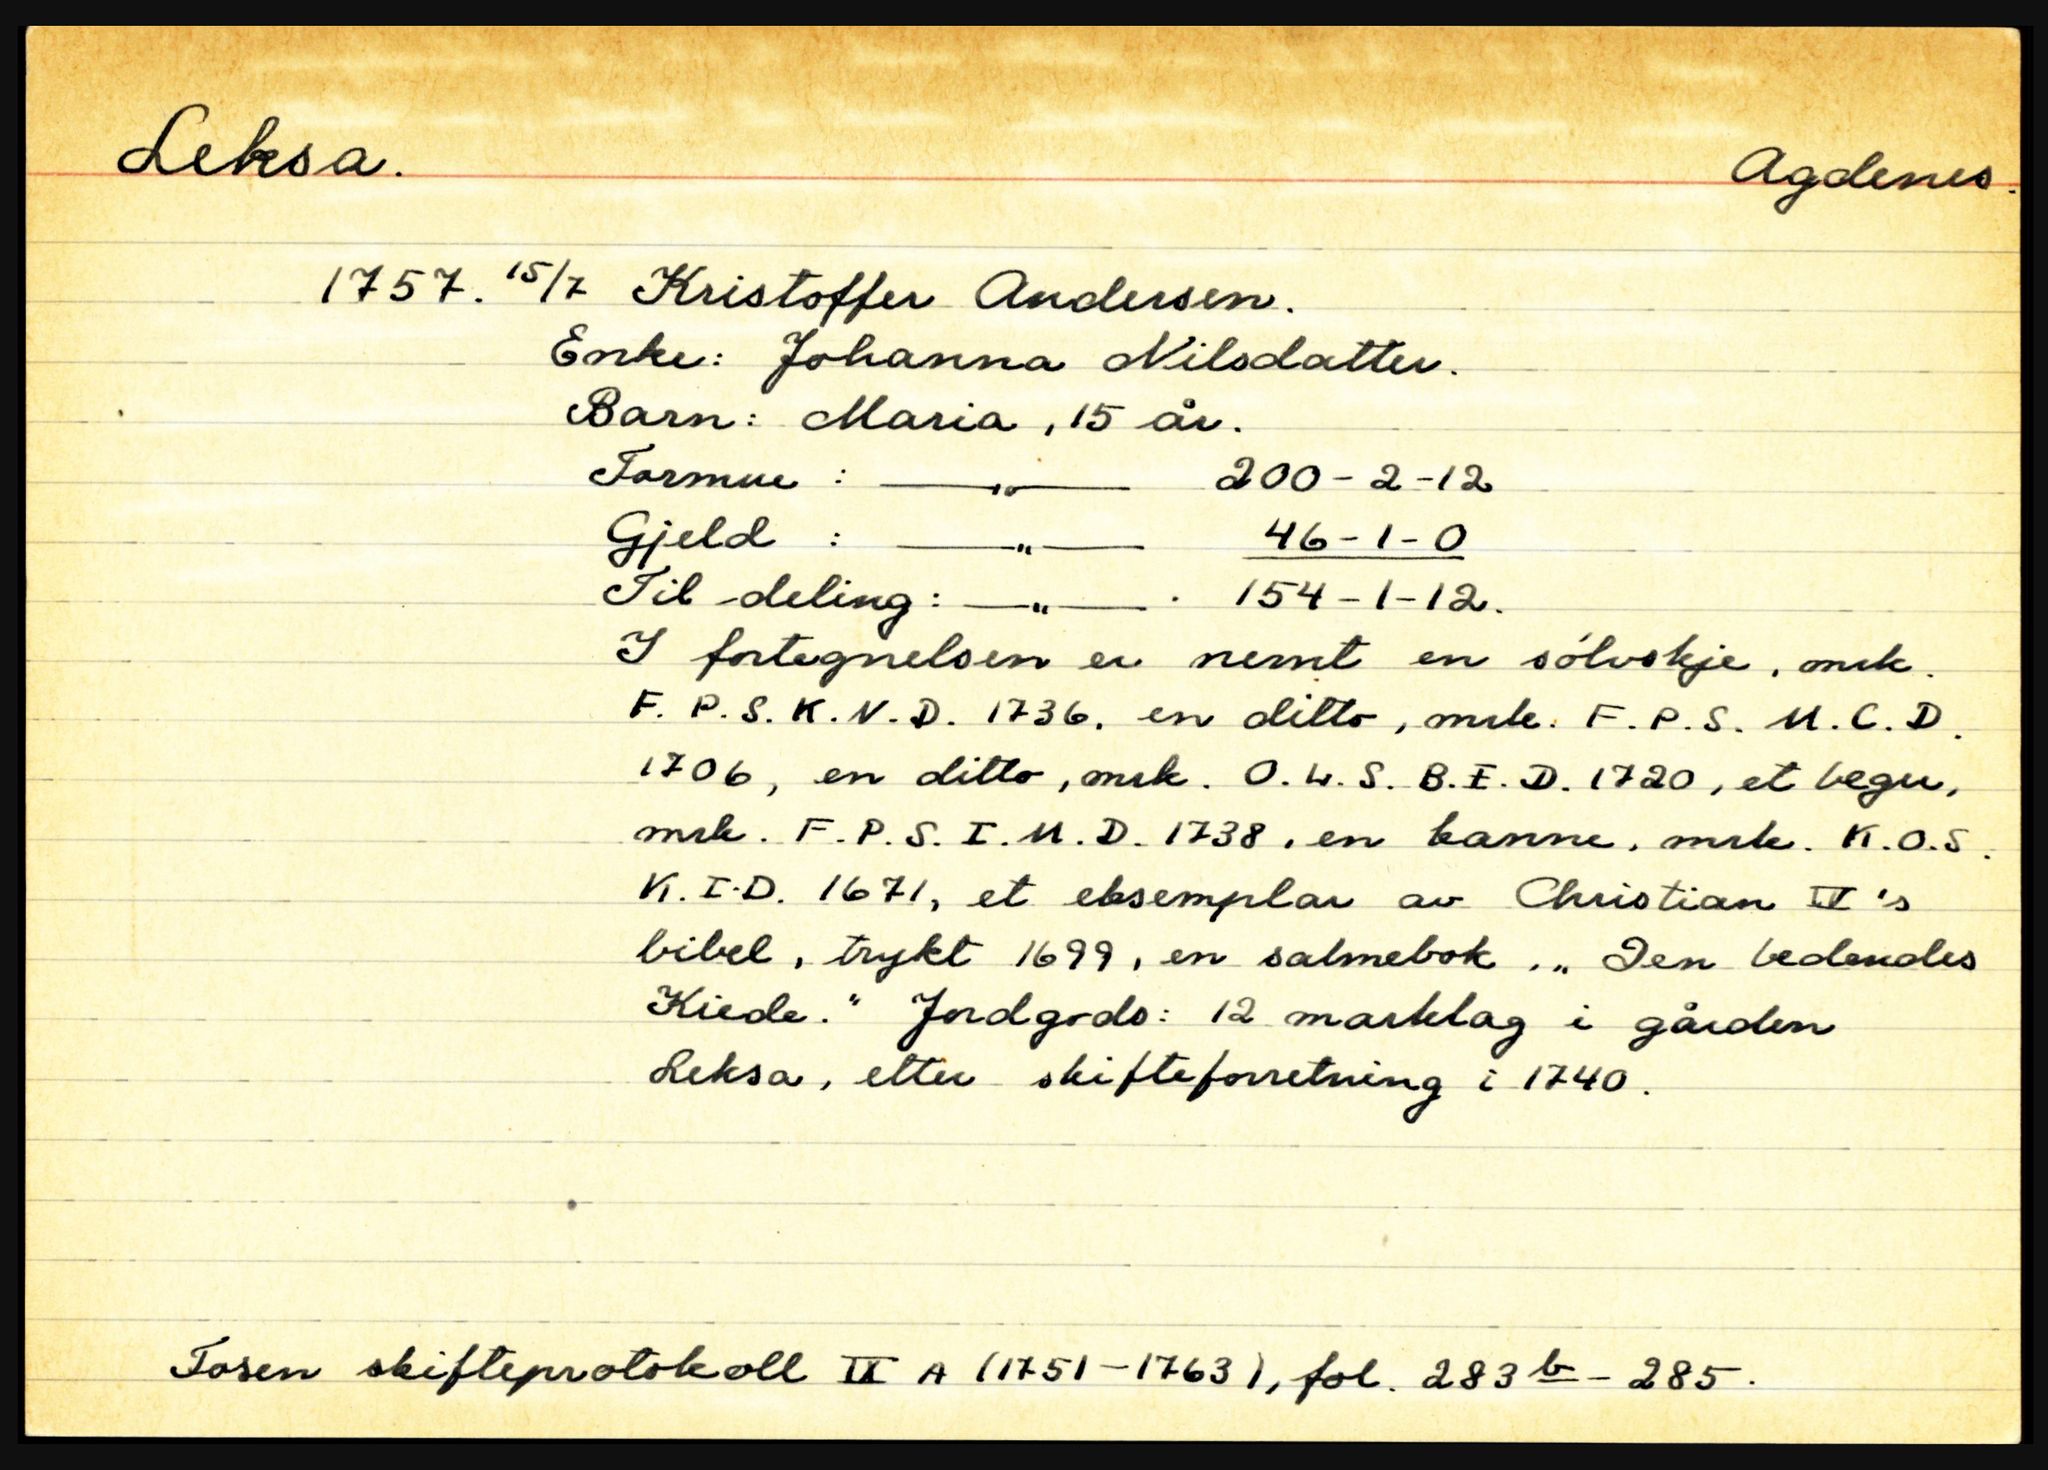 Leksa. Agdenes.
1757. 15/7 Kristoffer Andersen.
Enke: Johanna Nilsdatter.
Barn: Maria, 15 år.
Formue : —„— 200-2-12
Gjeld : —„— 46-1-0
Til deling: —„— 154-1-12.
I fortegnelsen er nevnt en sólvskje, mrk.
F. P. S. K. N. D. 1736, en ditto, mrk. F. P. S. M. C. D.
1706, en ditto, mrk. O. L. S. B. E. D. 1720, et beger,
mrk. F. P. S. I. M. D. 1738, en kanne, mrk. K. O. S.
K. I. D. 1671, et eksemplar av Christian IV's
bibel, trykt 1699, en salmebok, „Den bedendes
Kiede." Jordgods: 12 marklag i gården
Leksa, etter skifteforretning i 1740.
Fosen skifteprotokoll II A (1751-1763), fol. 283 b - 285.